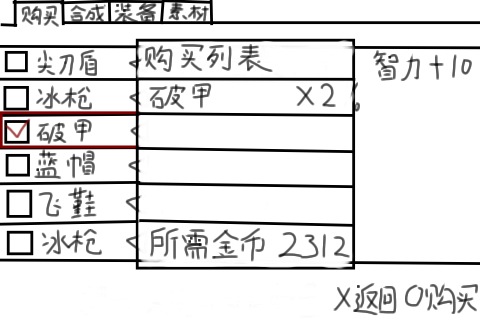 购买 合成 装备 素材
尖刀盾
冰枪
破甲
蓝帽
飞鞋
冰枪
购买列表
破甲 X2
所需金币 2312
智力+10
X返回 O购买